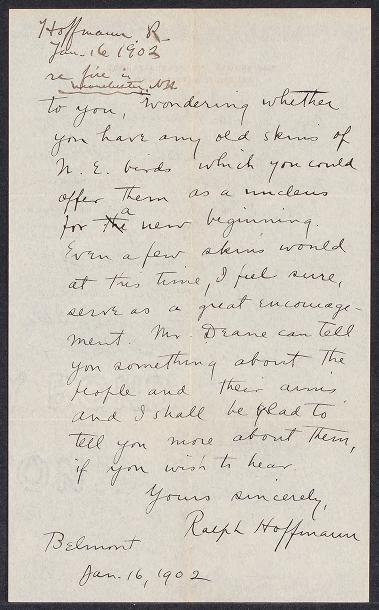 Hoffmann, R
Jan. 16 1902
re fire in
Manchester, NH
to you, wondering whether
you have any old skins of
N. E. birds which you could
offer them as a nucleus
for the a new beginning.
Even a few skins would
at this time, I feel sure,
serve as a great encourage-
ment. Mr. Deane can tell
you something about the
people and their aims
and I shall be glad to
tell you more about them,
if you wish to hear.
Yours sincerely,
Ralph Hoffmann
Belmont
Jan. 16, 1902